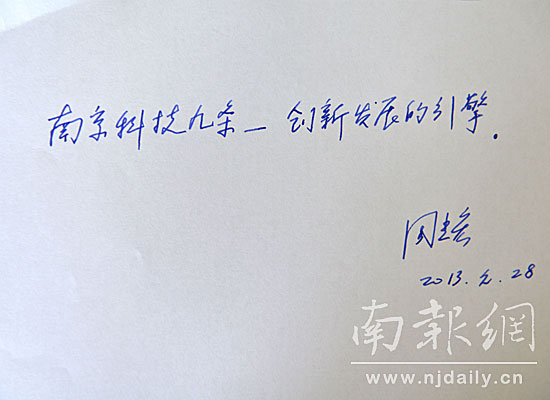 南京科技九条—创新发展的引擎.
2013.2.28
南報網
www.njdaily.cn